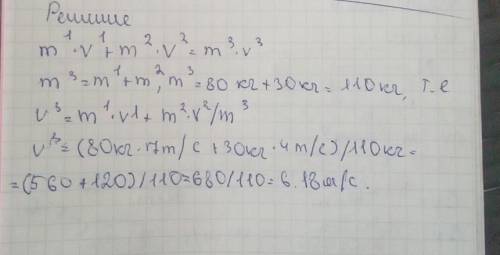 Решише
m¹·v¹+m²·v²=m³·v³
m³=m¹+m², m³=80кг+30кг=110кг, т.е
v³=m¹·v1+m²·v²/m³
v³=(80кг·7m/c+30кг·4m/c)/110кг=
=(560+120)/110=680/110=6.18м/с.